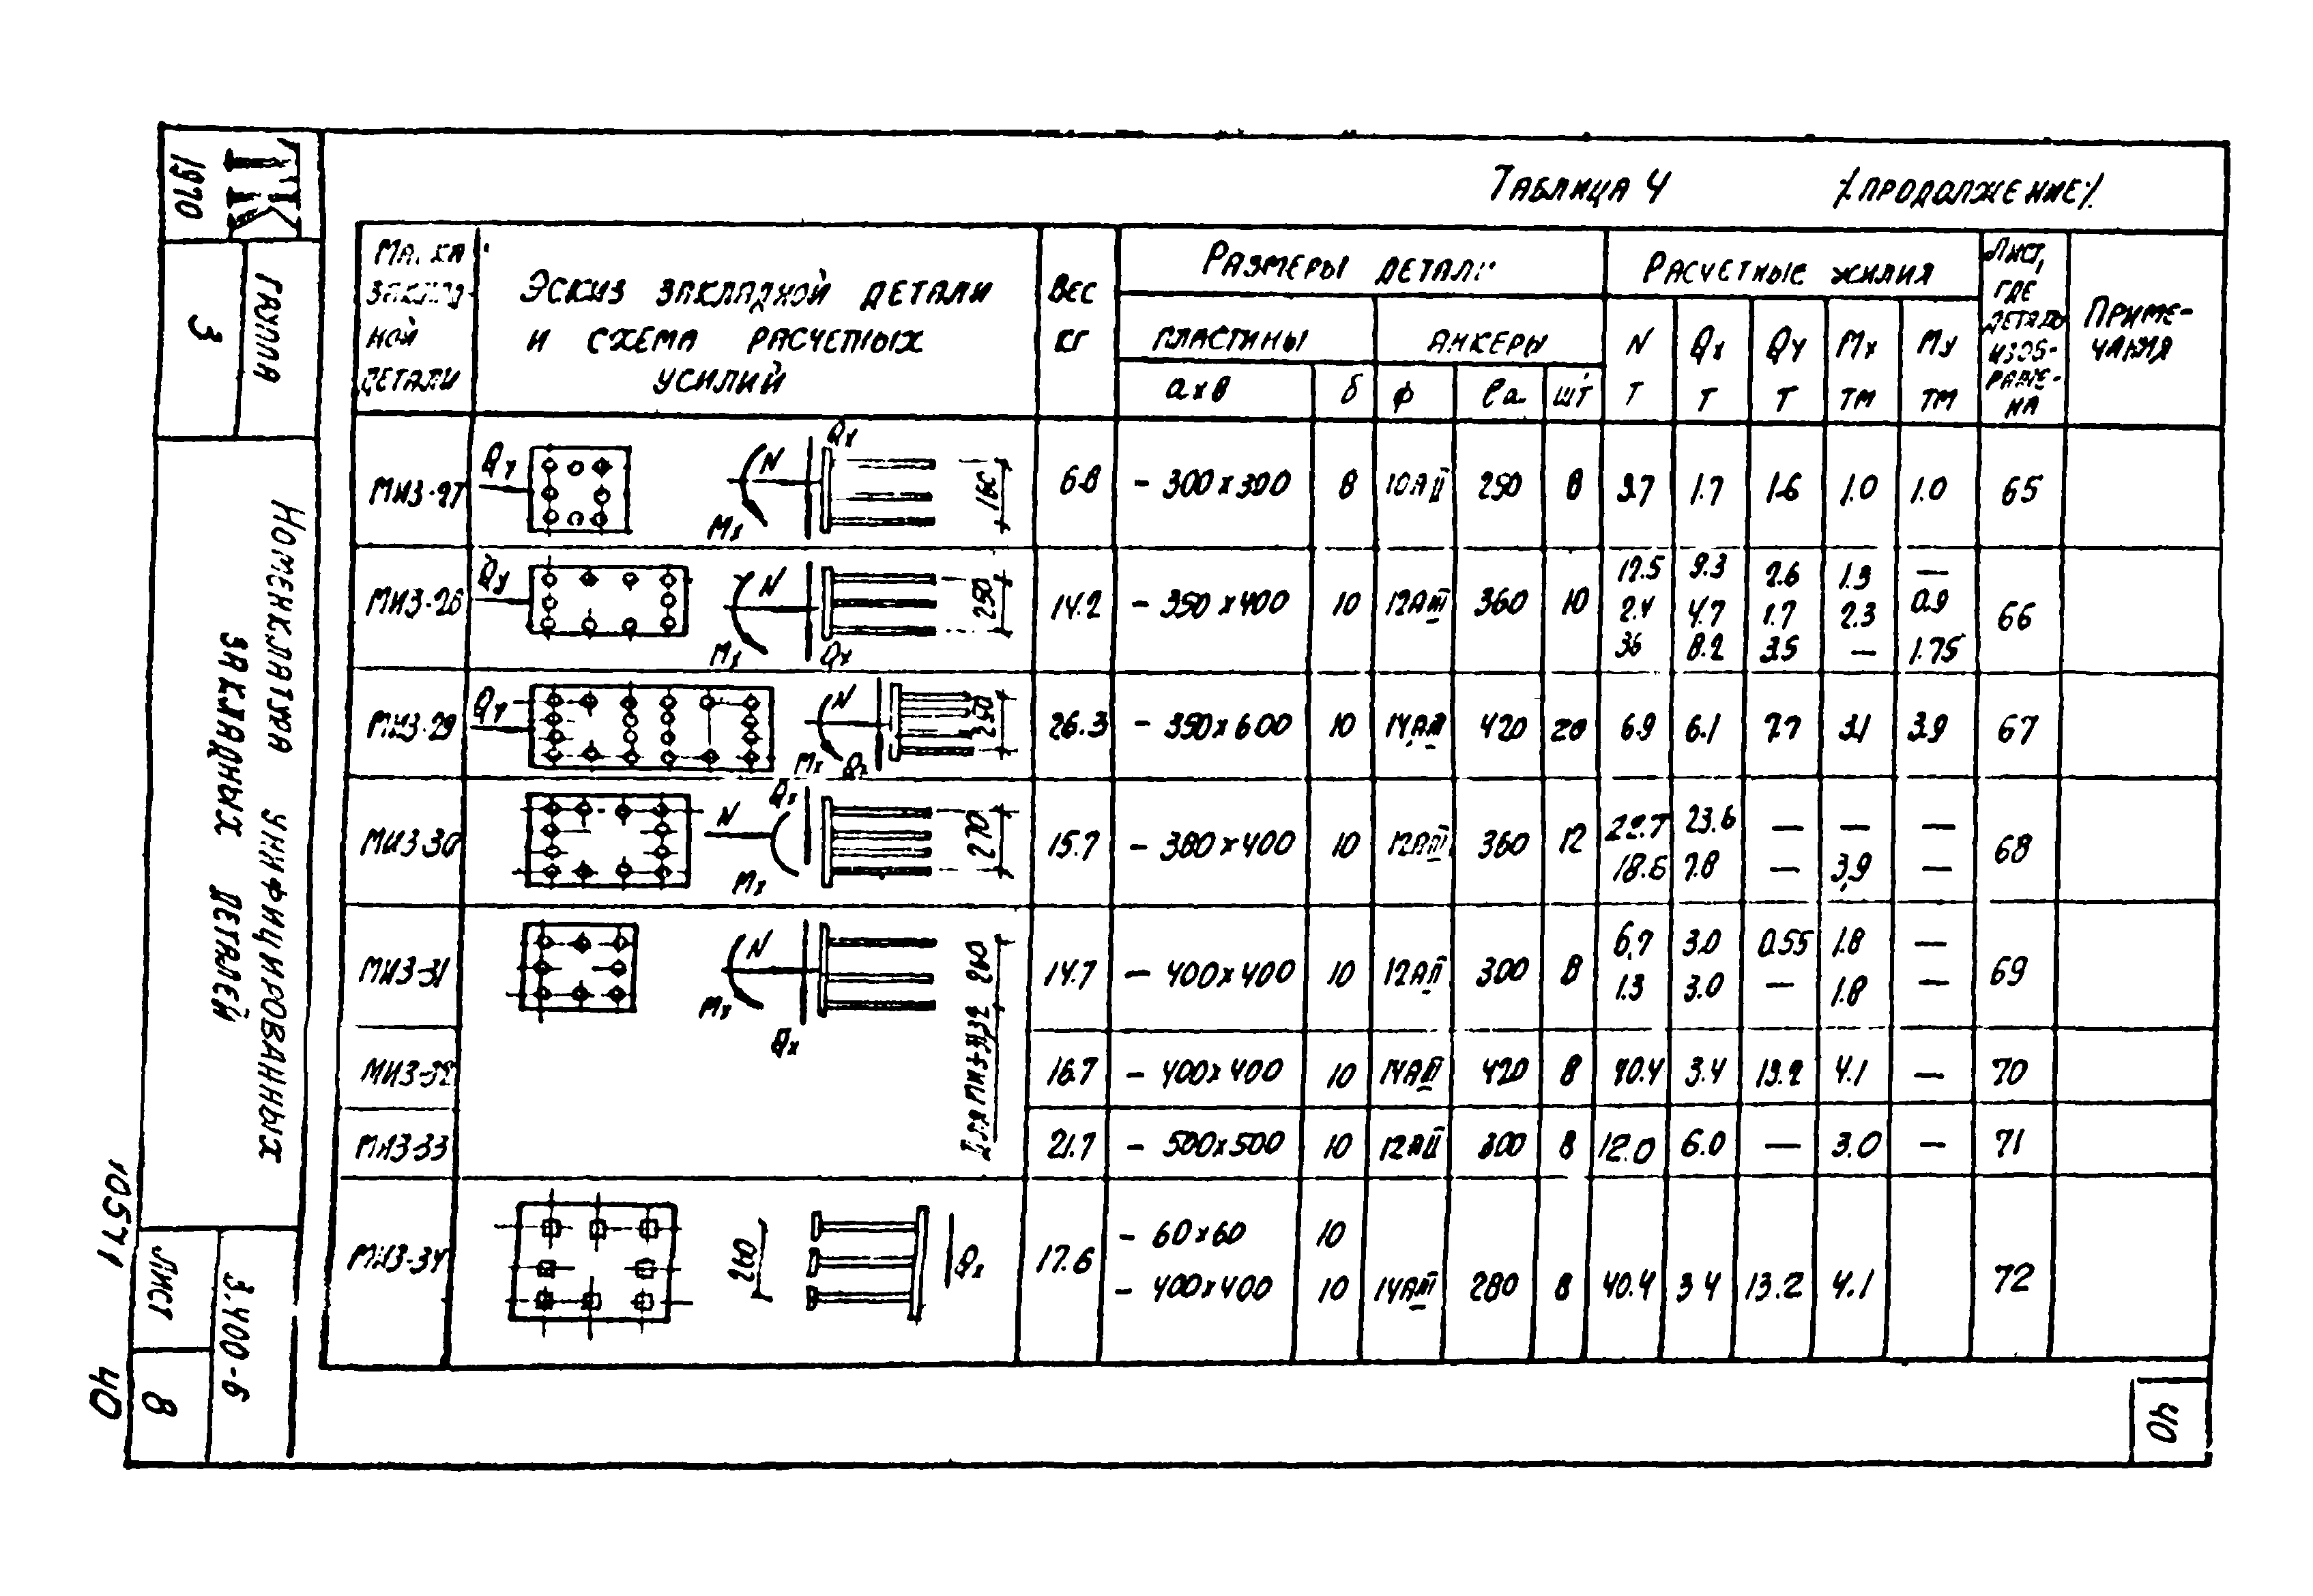 Таблица 4 /продолжение/.
ТК
1970
Группа
3
Номенклатура унифицированных
закладных деталей
3.400-6
Лист
8
10571
40
Марка
заклад-
ной
детали
Эскиз закладной детали
и схема расчетных
усилий
Вес
кг
Размеры детали
пластины
анкеры
а х в
δ
ф
ℓа
шт
Расчетные усилия
N
т
Qx
т
Qy
т
Mx
тм
My
тм
Лист,
где
деталь
изоб-
раже-
на
Приме-
чания
МИ3-27 Qy N Mx Qx 160 6.8 - 300 х 300 8 10АII 250 8 3.7 1.7 1.6 1.0 1.0 65
МИ3-28 Qy N Mx Qx 250 14.2 - 350 х 400 10 12АIII 360 10 66
12.5 9.3 2.6 1.3 —
2.4 4.7 1.7 2.3 0.9
36 8.2 3.5 — 1.75
МИ3-29 Qy N Mx Qx 250 26.3 - 350 х 600 10 14АIII 420 20 6.9 6.1 7.7 3.1 3.9 67
МИ3-30 N Mx Qx 270 15.7 - 380 х 400 10 12АIII 360 12 68
22.7 23.6 — — —
18.6 7.8 — 3,9 —
МИ3-31 N Mx Qx 260 14.7 - 400х400 10 12АII 300 8 69
6,7 3.0 0.55 1.8 —
1.3 3.0 — 1.8 —
МИ3-32 16.7 - 400х400 10 14АIII 420 8 40.4 3.4 13.2 4.1 — 70
МИ3-33 21.7 - 500х500 10 12АII 300 8 12.0 6.0 — 3.0 — 71
МИ3-34 260 Qx 17.6 72
- 60х60 10
- 400х400 10 14АIII 280 8 40.4 3 4 13.2 4.1
40